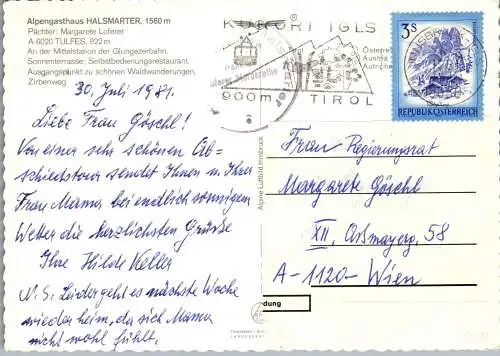 Alpengasthaus HALSMARTER, 1560 m
Pächter: Margarete Loferer
A-6020 TULFES, 922 m
An der Mittelstation der Glungezerbahn.
Sonnenterrasse, Selbstbedienungsrestaurant.
Ausgangspunkt zu schönen Waldwanderungen,
Zirbenweg
30. Juli 1981.
Liebe Frau Göschl!
Von einer sehr schönen Ab-
schiedstour sendet Ihnen u. Ihrer
Frau Mama bei endlich sonnigem
Wetter die herzlichsten Grüße
Ihre Hilde Keller
N. S. Leider geht es nächste Woche
wieder heim, da sich Mama
nicht wohl fühlt.
KURORT IGLS
900m
TIROL
3S
REPUBLIK ÖSTERREICH
Alpine Luftbild Innsbruck
Frau Regierungsrat
Margarete Göschl
XII, Aßmayerg. 58
A-1120-Wien